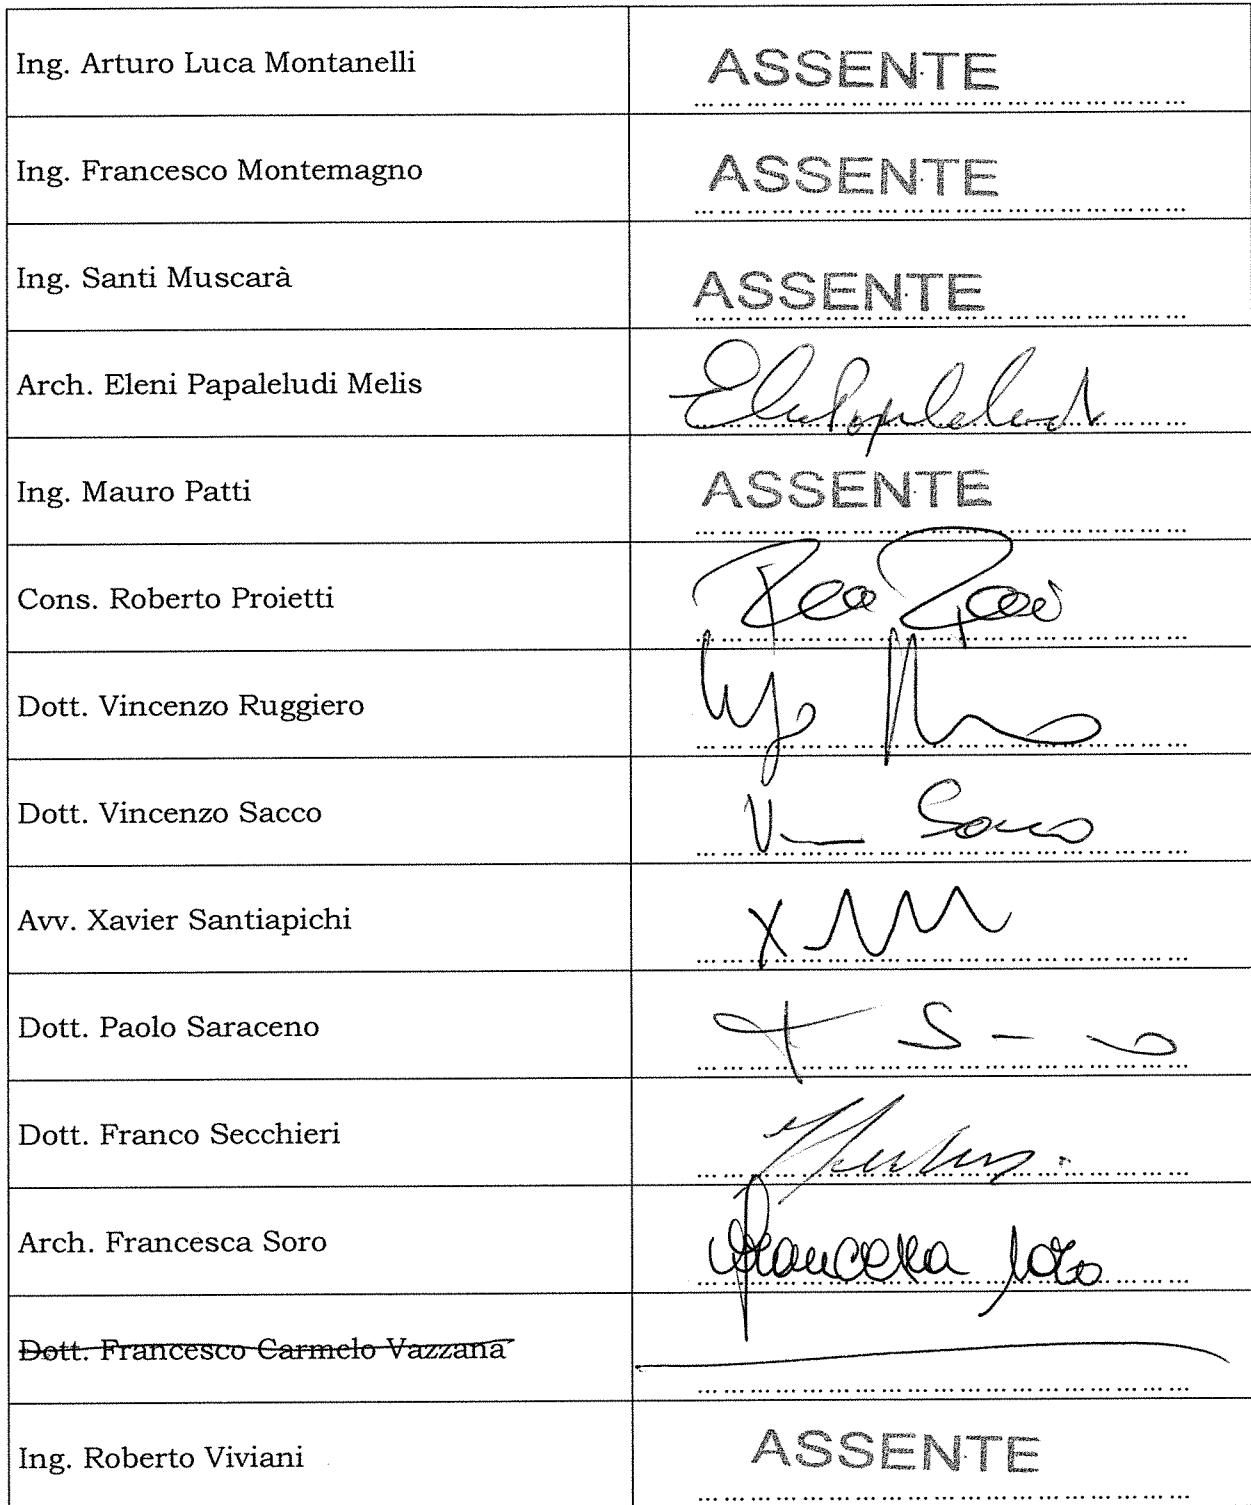 Ing. Arturo Luca Montanelli ASSENTE
Ing. Francesco Montemagno ASSENTE
Ing. Santi Muscarà ASSENTE
Arch. Eleni Papaleludi Melis
Ing. Mauro Patti ASSENTE
Cons. Roberto Proietti
Dott. Vincenzo Ruggiero
Dott. Vincenzo Sacco
Avv. Xavier Santiapichi
Dott. Paolo Saraceno
Dott. Franco Secchieri
Arch. Francesca Soro Francesca Soro
Dott. Francesco Carmelo Vazzana
Ing. Roberto Viviani ASSENTE